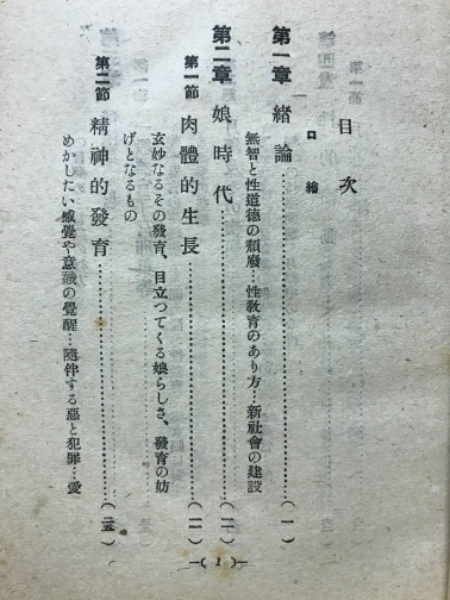 目次
口繪
第一章 緒論……………………(一)
無智と性道德の頽廢…性敎育のあり方…新社會の建設
第二章 娘時代……………………(一一)
第一節 肉體的生長……………………(一一)
玄妙なるその發育、目立つてくる娘らしさ、發育の妨
げとなるもの
第二節 精神的發育……………………(二五)
めかしたい感覺や意識の覺醒…隨伴する惡と犯罪…愛
—( 1 )—